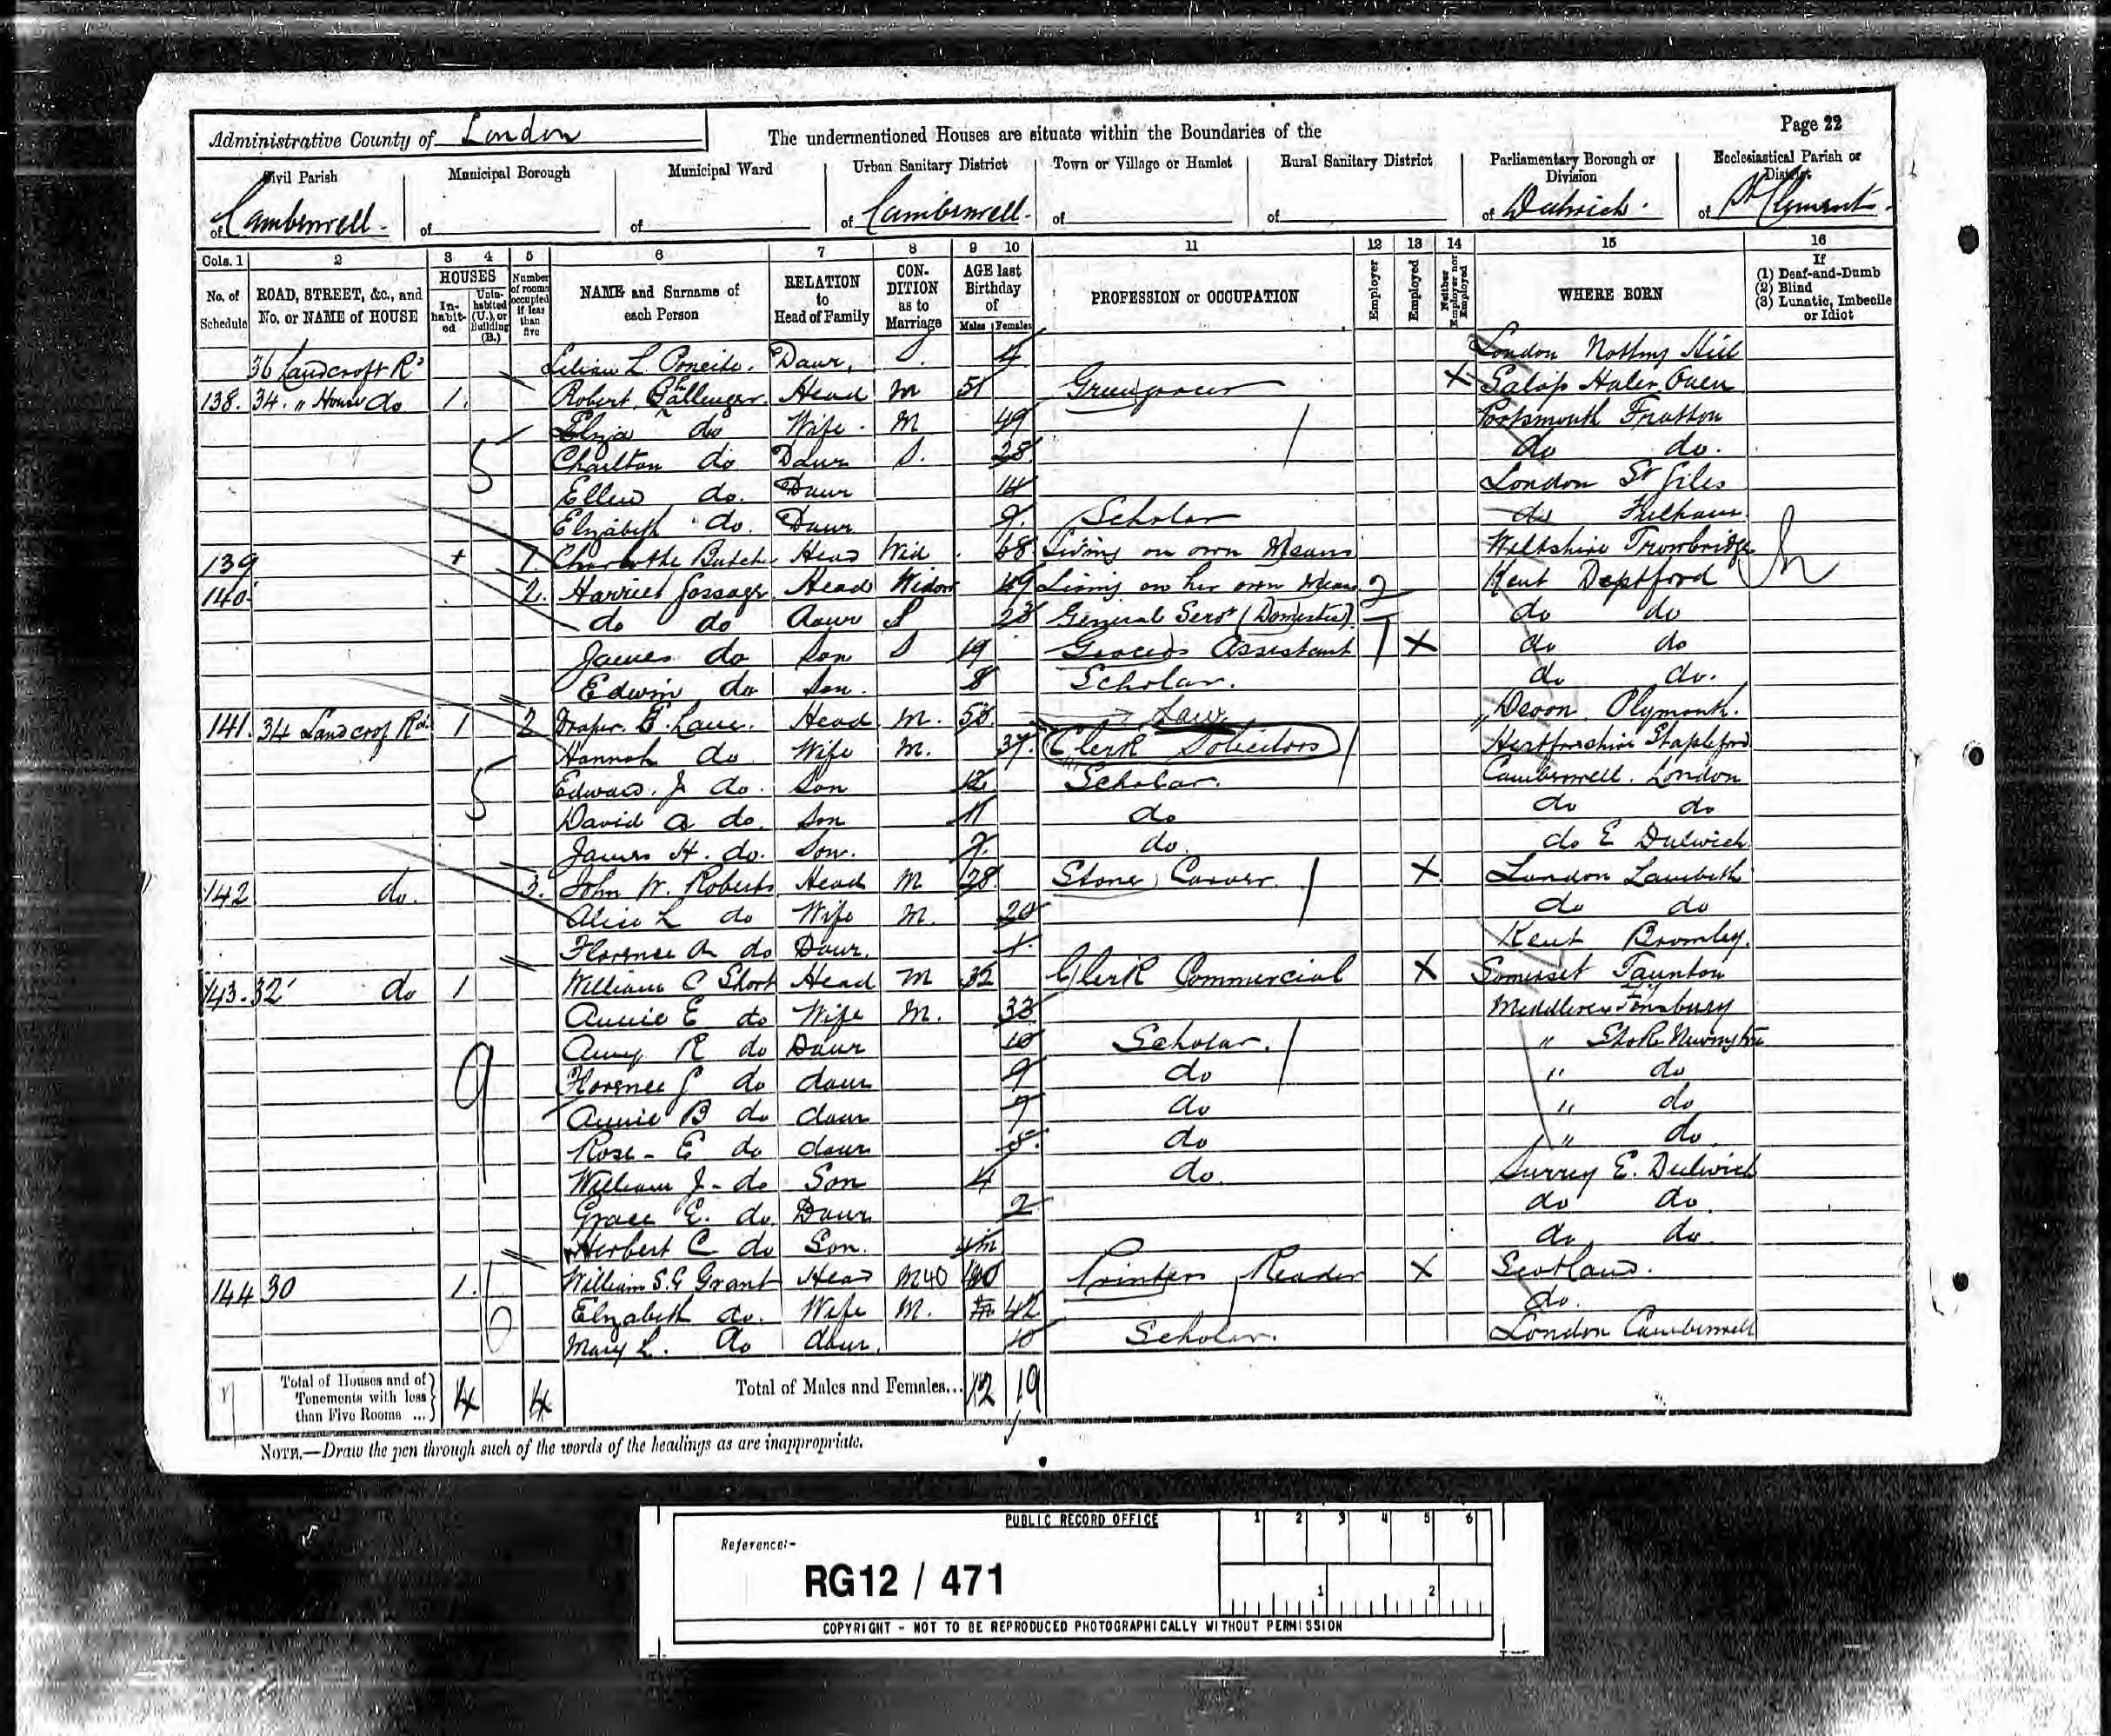 Administrative County of London The undermentioned Houses are situate within the Boundaries of the Page 22
Civil Parish Municipal Borough Municipal Ward Urban Sanitary District Town or Village or Hamlet Rural Sanitary District Parliamentary Borough or Division Ecclesiastical Parish or District
of Camberwell. of of of Camberwell. of of of Dulwich. of St Clement.
Cols. 1 2 3 4 5 6 7 8 9 10 11 12 13 14 15 16
No. of Schedule ROAD, STREET, &c., and No. or NAME of HOUSE HOUSES Inhabit-ed Unin-habited (U.), or Building (B.) Number of rooms occupied if less than five NAME and Surname of each Person RELATION to Head of Family CON-DITION as to Marriage AGE last Birthday of Males Females PROFESSION or OCCUPATION Employer Employed Neither Employer nor Employed WHERE BORN If (1) Deaf-and-Dumb (2) Blind (3) Lunatic, Imbecile or Idiot
36 Landcroft Rd Lilian L. Daur. S. 4 London Notting Hill
138. 34. " House do 1. Robert Ballenger. Head M 51 Greengrocer X Salop Hales Owen
Eliza do Wife. M 49 Portsmouth Fratton
do Daur S. 28 do do.
Ellen do. Daur 14 London St Giles
Elizabeth do. Daur 9. Scholar do Fulham
139 + 1. Charlotte Head Wid. 68 Living on own Means Wiltshire Trowbridge
140. 2. Harriet Gossage Head Widow 49 Living on her own Means Kent Deptford
do do Daur S 23 General Servt (Domestic). do do
James do Son S 19 Grocers Assistant X do do
Edwin do Son. 8 Scholar. do do.
141. 34 Landcrof Rd. 1 2 Draper. E. Lane. Head M. 58. Law Devon. Plymouth.
5 Hannah do Wife M. 37. Clerk Solicitors Hertfordshire Stapleford
Edward. J do. Son 12 Scholar. Camberwell. London
David A do. Son 11 do do do
James H. do. Son. 9. do. do E Dulwich
142 do. 3. John W. Roberts Head M 28. Stone Carver. X London Lambeth
Alice L do Wife M. 20 do do
Florence A do Daur. 1. Kent Bromley.
143. 32 do 1 William C Short Head M 32 Clerk Commercial X Somerset Taunton
Annie E do Wife M. 33 Middlesex Finsbury
9 Amy R do Daur 10 Scholar. " Stoke Newington
Florence G do daur 9 do " do
Annie B do daur 7 do " do
Rose E do daur 5. do " do
William J. do Son 4 do. Surrey E. Dulwich
Grace E. do. Daur 2 do do.
Herbert C do Son. 4m do do.
144 30 1. William S. G Grant Head M 40 40 Printers Reader X Scotland.
6 Elizabeth do. Wife M. 42 do.
Mary L. do daur. 10 Scholar. London Camberwell
Total of Houses and of Tenements with less than Five Rooms ... 4 4 Total of Males and Females... 12 19
NOTE.—Draw the pen through such of the words of the headings as are inappropriate.
PUBLIC RECORD OFFICE 1 2 3 4 5 6
Reference:-
RG12 / 471
1 2
COPYRIGHT - NOT TO BE REPRODUCED PHOTOGRAPHICALLY WITHOUT PERMISSION